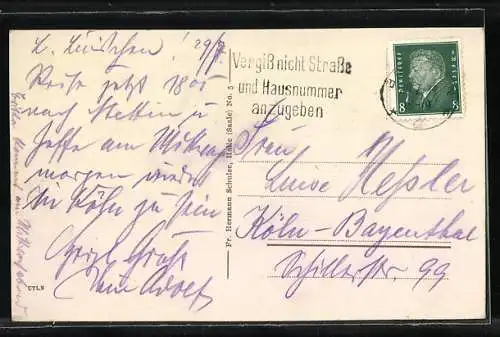 L. Luischen! 29/7.
Reise jetzt 18 05
nach Stettin u
hoffe am Mittwoch
morgen wieder
in Köln zu sein
Herzl. Grüße
Dein Adolf
Vergiß nicht Straße
und Hausnummer
anzugeben
Deutsches
Reich
8
8
Fr. Hermann Schuler, Halle (Saale) No. 5
Frau
Luise Keßler
Köln-Bayenthal
Schillerstr. 99